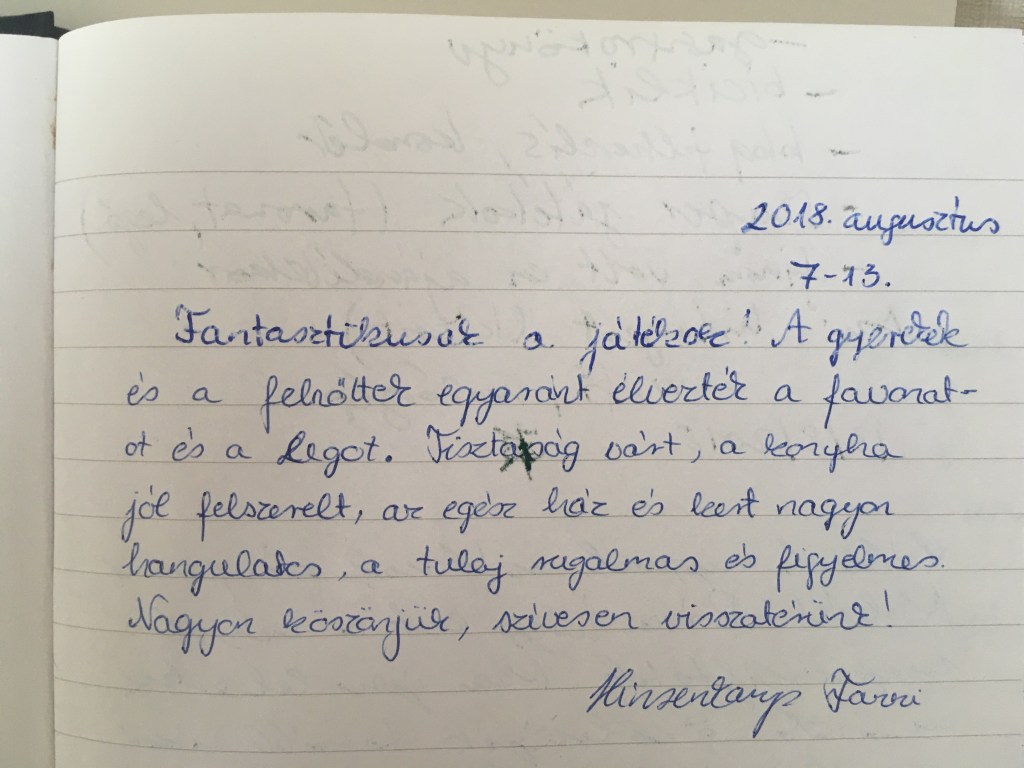 2018. augusztus
7-13.
Fantasztikusak a játékok! A gyerekek
és a felnőttek egyaránt élvezték a favonat-
ot és a Legot. Tisztaság várt, a konyha
jól felszerelt, az egész ház és kert nagyon
hangulatos, a tulaj rugalmas és figyelmes.
Nagyon köszönjük, szívesen visszatérünk!